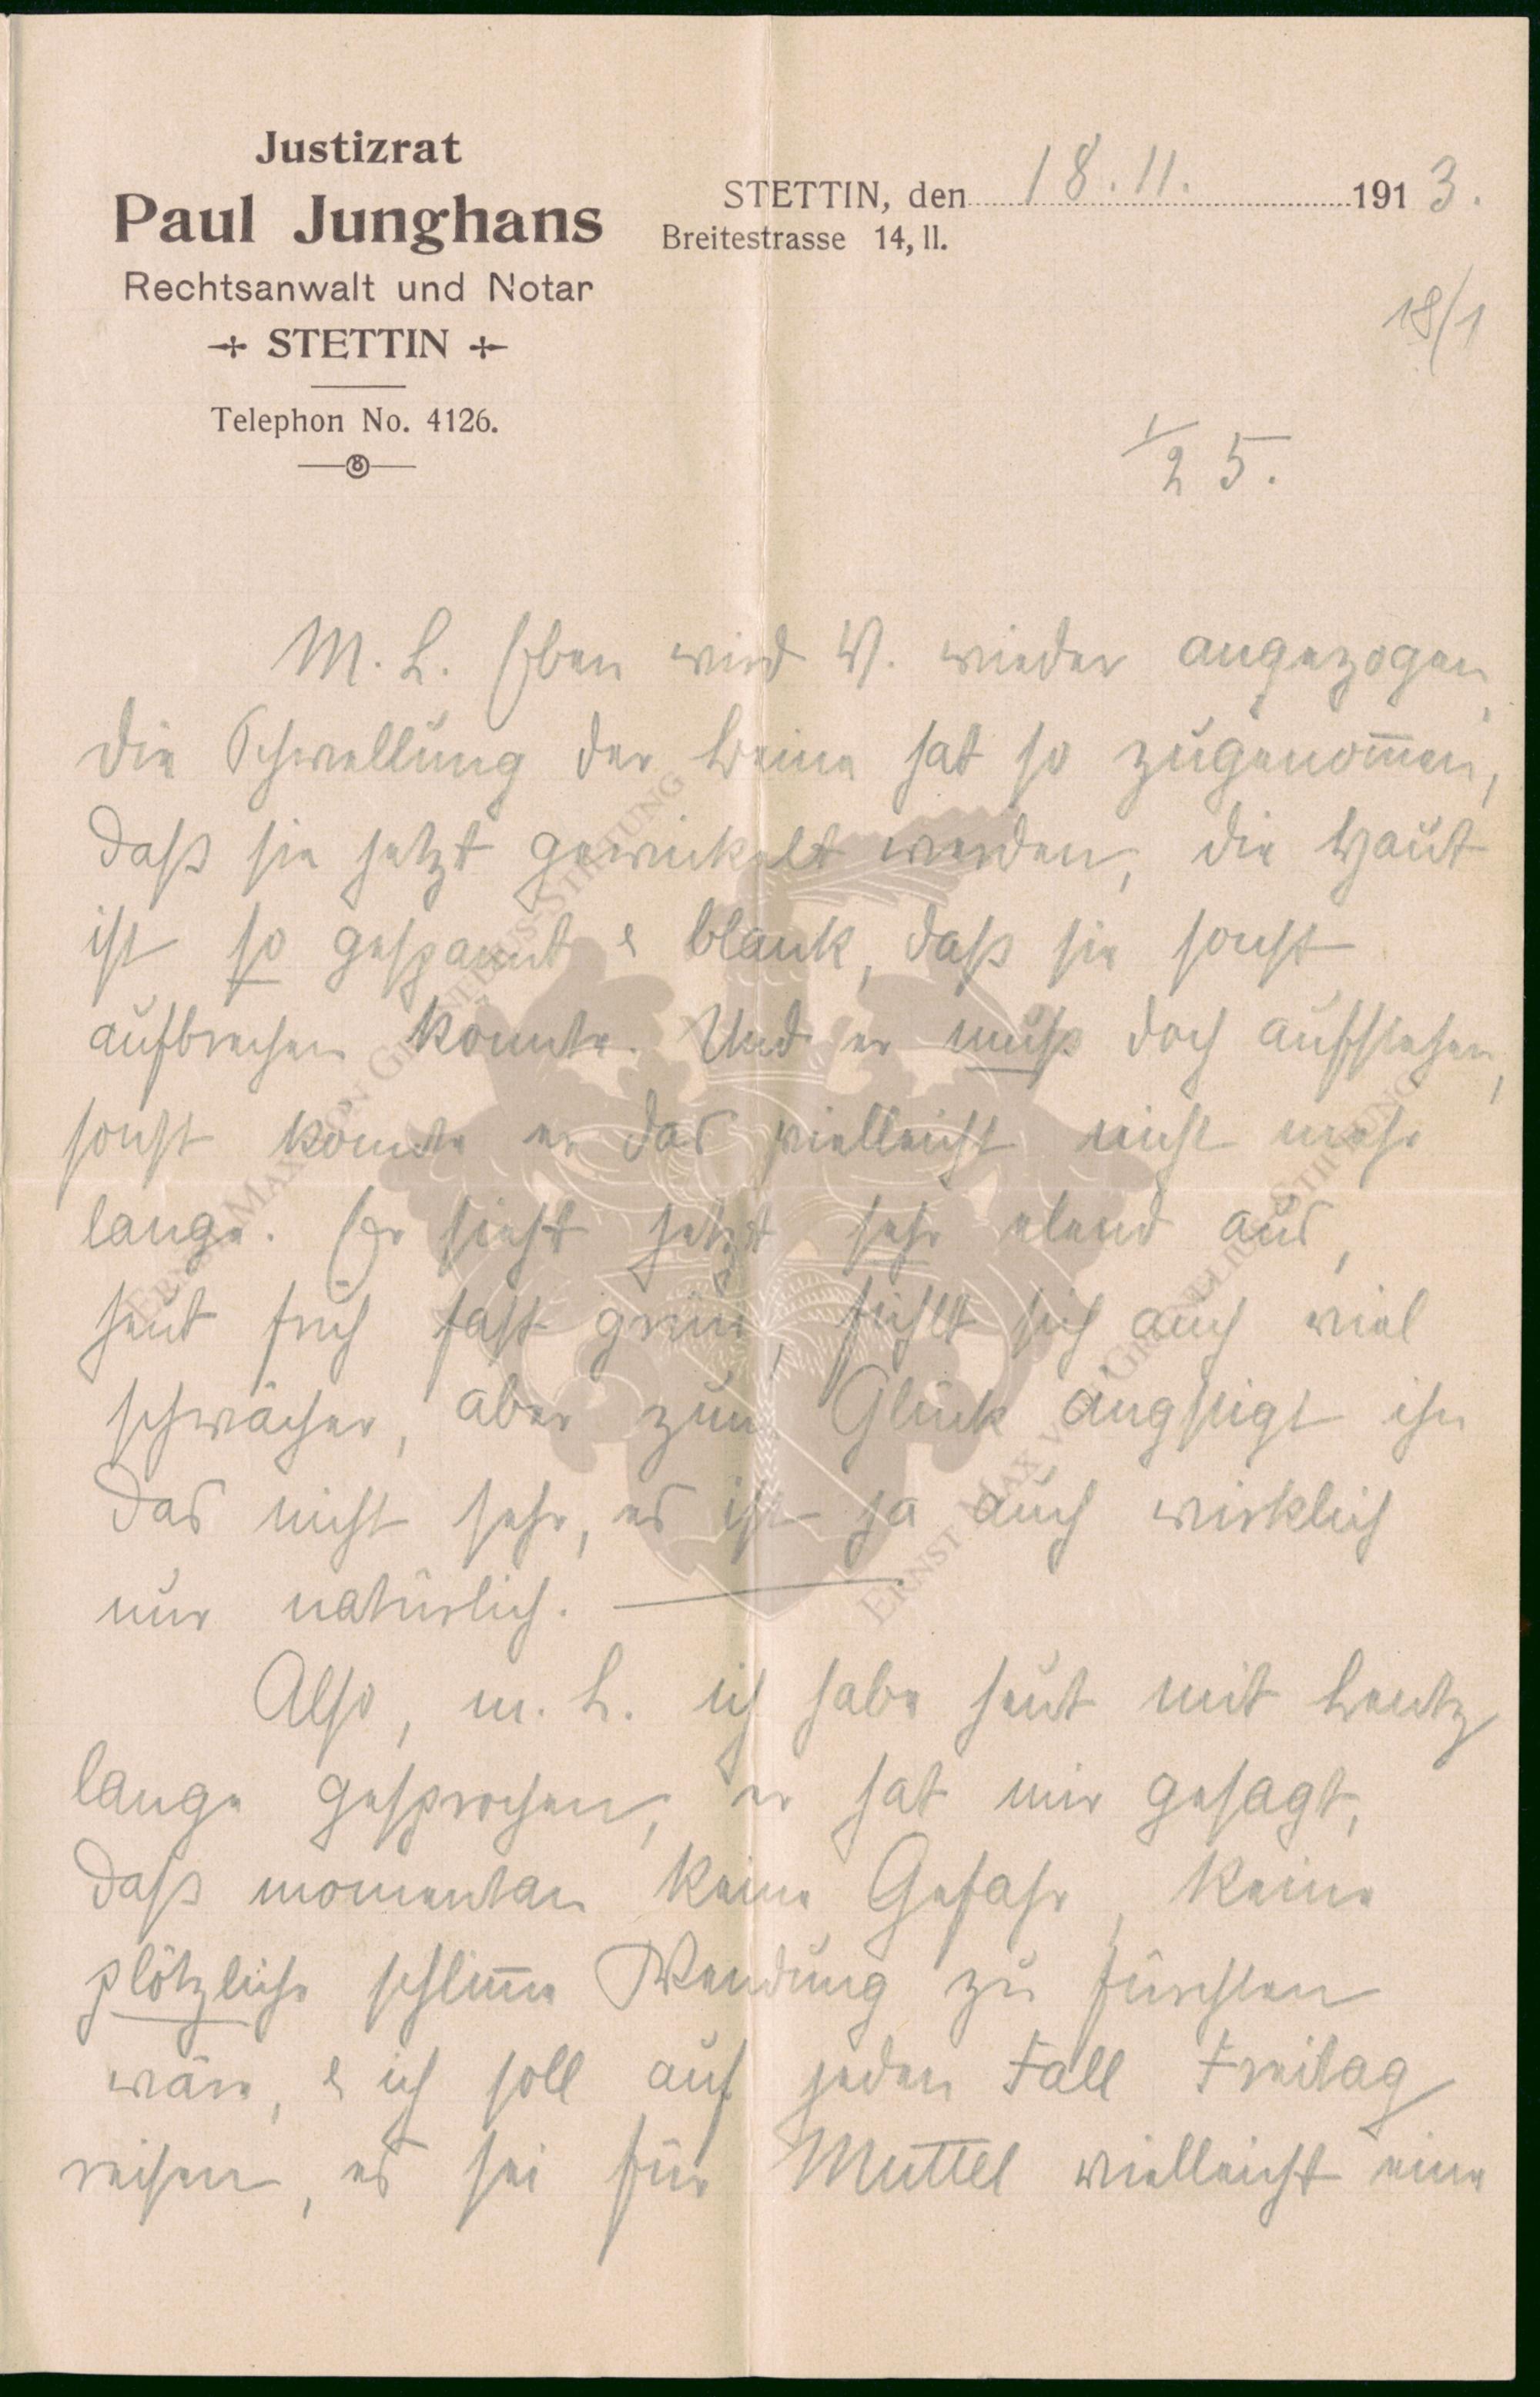 Justizrat
Paul Junghans
Rechtsanwalt und Notar
STETTIN
Telephon No. 4126.
STETTIN, den 18.11. 1913.
Breitestrasse 14, II.
18/1
1/2 5.
M. L. Eben wird V. wieder angezogen,
die Schwellung der Beine hat so zugenom̄en,
daß sie jetzt gewickelt werden, die Haut
ist so gespannt & blank, daß sie sonst
aufbrechen könnte. Und er muß doch aufstehen,
sonst könnte er das vielleicht nicht mehr
lange. Er sieht jetzt sehr elend aus,
heut früh fast grün, fühlt sich auch viel
schwächer, aber zum Glück ängstigt ihn
das nicht sehr, es ist ja auch wirklich
nur natürlich.
Also, m. L. ich habe heut mit Bentz
lange gesprochen, er hat mir gesagt,
daß momentan keine Gefahr, keine
plötzliche schlim̄e Wendung zu fürchten
wäre, & ich soll auf jeden Fall Freitag
reisen, es sei für Muttel vielleicht eine
ERNST MAX VON GRUNELIUS-STIFTUNG
ERNST MAX VON GRUNELIUS-STIFTUNG